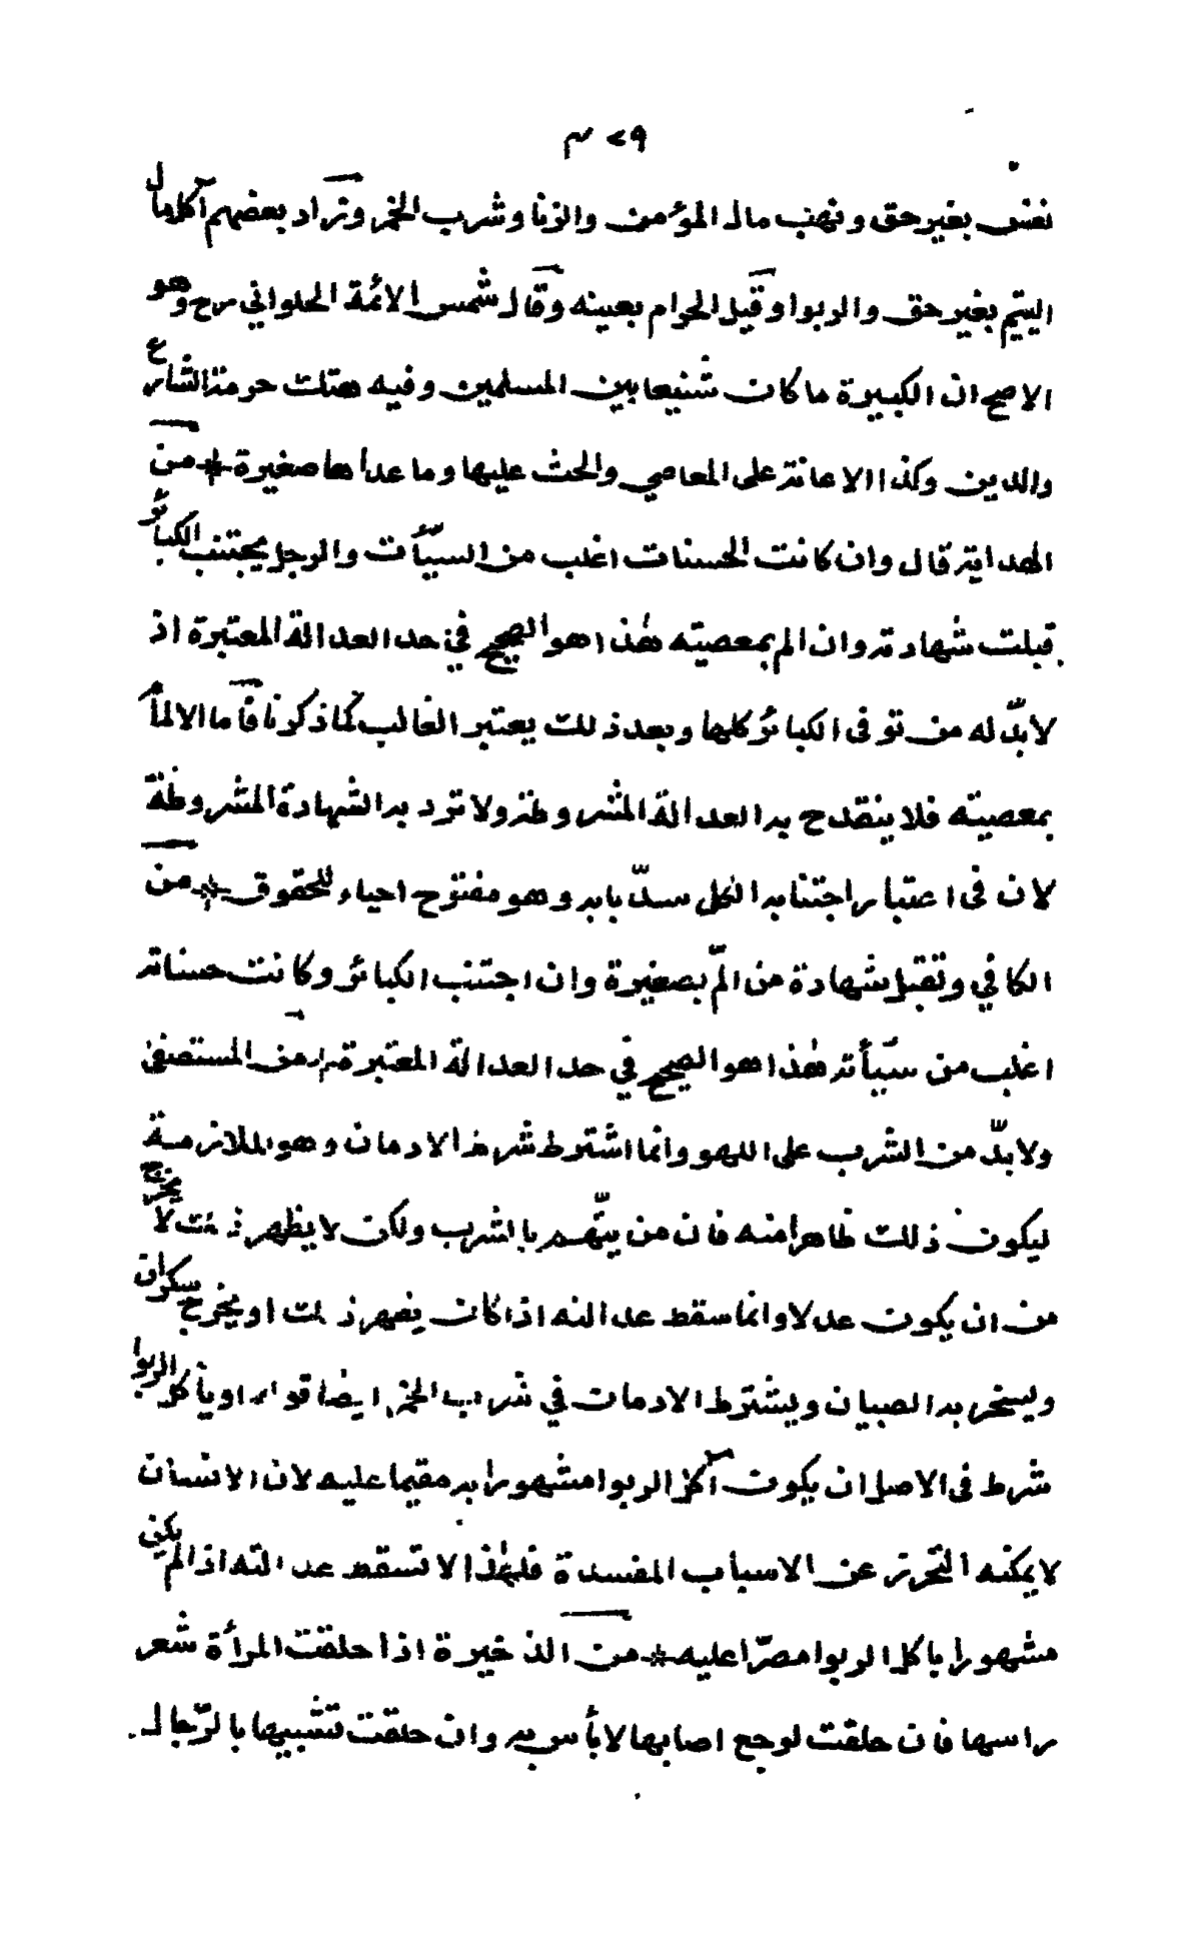 ٣٢٩
نفس بغير حق ونهب مال المؤمن والزنا وشرب الخمر وزاد بعضهم آكل مال
اليتيم بغير حق والربوا وقيل الحرام بعينه وقال شمس الائمة الحلواني رح وهو
الاصح ان الكبيرة ما كان شنيعا بين المسلمين وفيه هتك حرمة الشارع
والدين وكذا الاعانة على المعاصي والحث عليها وما عداها صغيرة * من
الهداية قال وان كانت الحسنات اغلب من السيّأت والرجل يجتنب الكبائر
قبلت شهادته وان الم بمعصيته هٰذا هو الصحيح في حد العدالة المعتبرة اذ
لا بدّ له من توقى الكبائر كلها وبعد ذلك يعتبر الغالب كما ذكرنا فآما الالمام
بمعصيته فلا ينقدح به العدالة المشروطة ولا ترد به الشهادة المشروطة
لان فى اعتبار اجتنابه الكل سدّ بابه وهو مفتوح احياء للحقوق * من
الكافي وتقبل شهادة من المّ بصغيرة وان اجتنب الكبائر وكانت حسناته
اغلب من سيّأته هٰذا هو الصحيح في حد العدالة المعتبرة * من المستصفى
ولا بدّ من الشرب على اللهو وانما اشترط شرط الادمان وهو الملازمة
ليكون ذلك ظاهرا منه فان من يتّهم بالشرب ولكن لا يظهر ذلك لا يخرج
من ان يكون عدلا وانما سقط عدالته اذا كان يظهر ذلك او يخرج سكران
ويسخر به الصبيان ويشترط الادمان في شرب الخمر ايضا قوله او ياكل الربوا
شرط فى الاصل ان يكون آكل الربوا مشهورا به مقيما عليه لان الانسان
لا يمكنه التحرز عن الاسباب المفسدة فلهٰذا لا تسقط عدالته اذا لم يكن
مشهورا باكل الربوا مصرّا عليه * من الذخيرة اذا حلقت المرأة شعر
راسها فان حلقت لوجع اصابها لا بأس به وان حلقت تشبيها بالرّجال